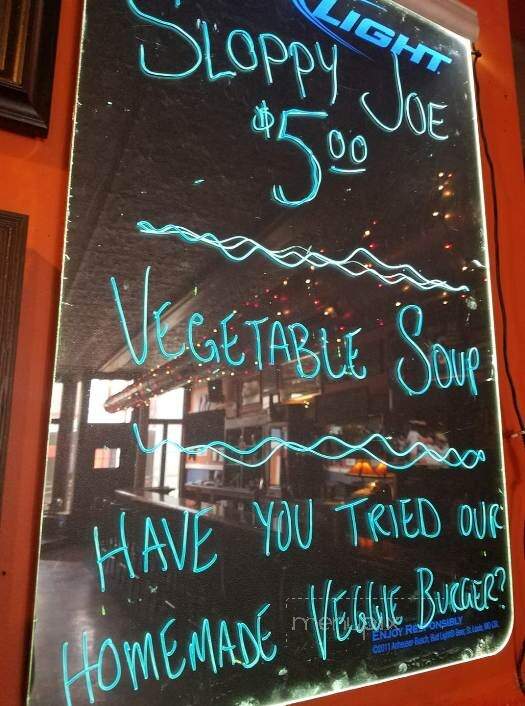 LIGHT
SLOPPY JOE
$5.00
VEGETABLE SOUP
HAVE YOU TRIED OUR
HOMEMADE VEGGIE BURGER?
menupix
ENJOY RESPONSIBLY
©2011 Anheuser-Busch, Bud Light® Beer, St. Louis, MO